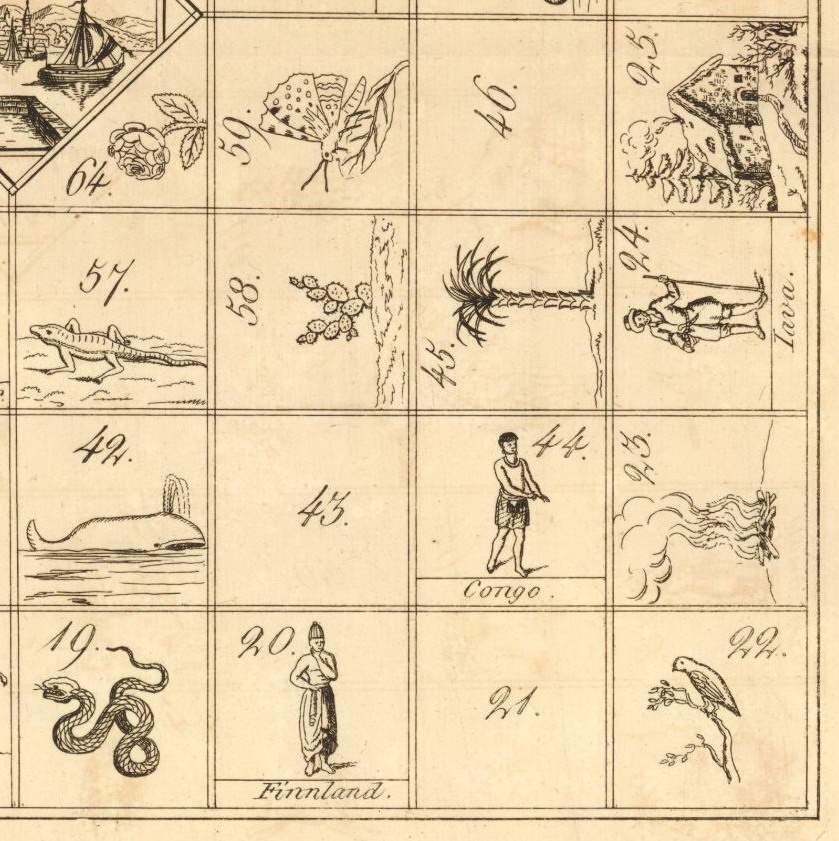 64.
59.
46.
25.
57.
58.
45.
24.
Iava.
42.
43.
44.
Congo.
23.
19.
20.
Finnland.
21.
22.